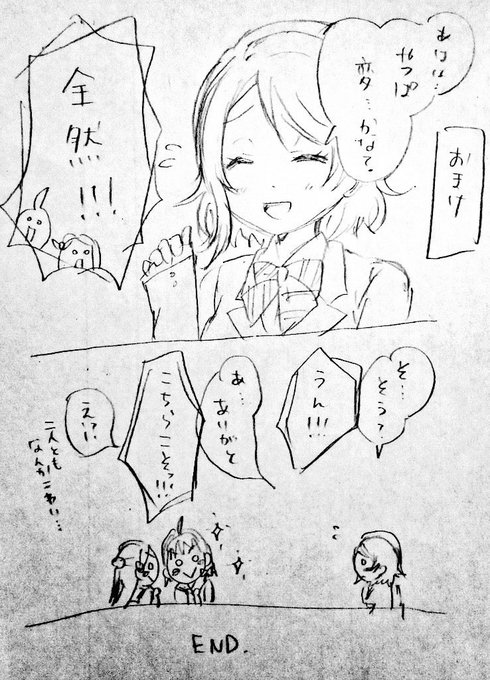 おまけ
あはは…
やっぱ
変…かな?
全然!!!
そ…
そう?
うん!!!
あ…
ありがと
こちらこそっ!!!
えっ!?
二人とも
なんかこわい…
END.